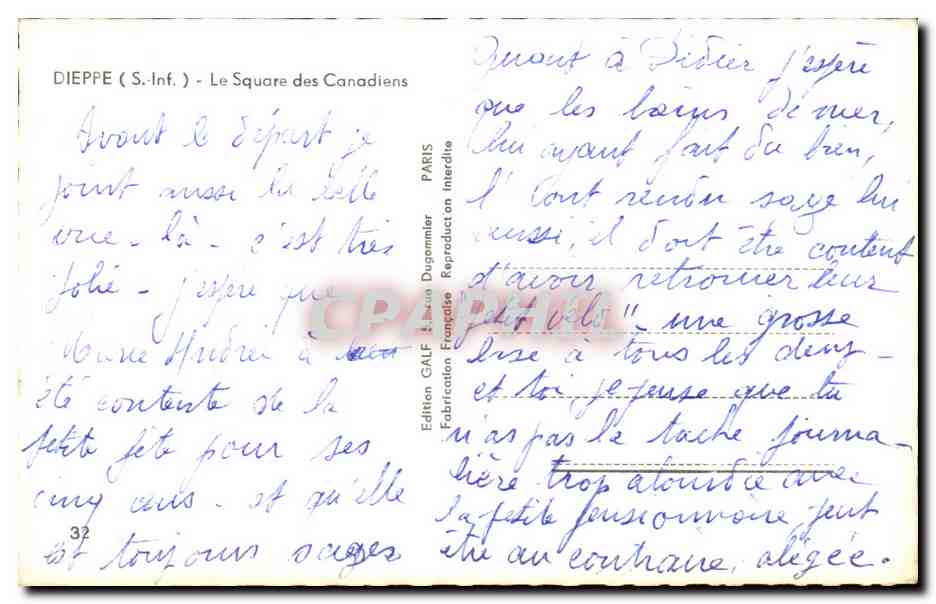 DIEPPE ( S.-Inf. ) - Le Square des Canadiens
Avant le départ je
joint aussi la belle
vue - là - c'est très
jolie - j'espère que
Marie Andrée à
été contente de la
petite fête pour ses
cinq ans - et qu'elle
est toujours sages
32
Edition GALF rue Dugommier PARIS
Fabrication Française Reproduction Interdite
CPAPHIL
Quant à Didier j'espère
que les bains de mer,
lui ayant fait du bien,
l'ont rendu sage lui
aussi, il doit être content
d'avoir retrouver leur
"petit vélo" - une grosse
bise à tous les deux -
et toi, je pense que tu
n'as pas la tache journa-
lière trop alourdie avec
la petite pensionnaire, peut
être au contraire, alégée.